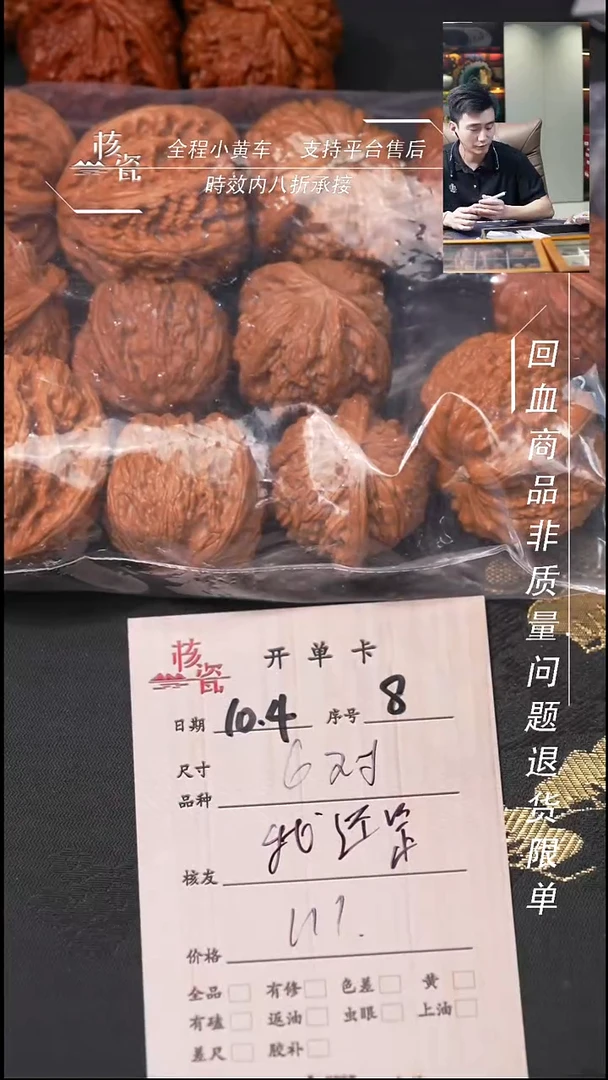 核瓷
全程小黄车 支持平台售后
時效内八折承接
回血商品非质量问题退货限单
核瓷
开单卡
日期 10.4 序号 8
尺寸
品种 6对
核友
价格
全品 有修 色差 黄
有磕 返油 虫眼 上油
差尺 胶补